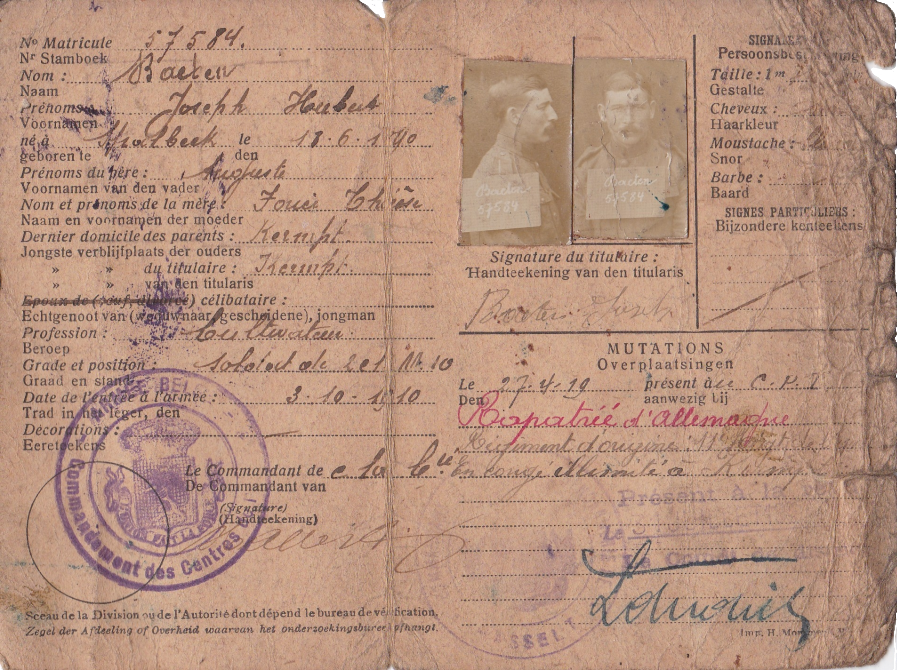 No Matricule 57584.
Nr Stamboek
Nom : Baeten
Naam
Prénoms Joseph Hubert
Voornamen
né à le 18-6-1890
geboren te den
Prénoms du père : Auguste
Voornamen van den vader
Nom et prénoms de la mère :
Naam en voornamen der moeder
Dernier domicile des parents : Kermpt.
Jongste verblijfplaats der ouders
» » du titulaire : Kermpt.
» » van den titularis
Epoux de (veuf, divorcé) célibataire :
Echtgenoot van (weduwnaar, gescheidene), jongman
Profession : Cultivateur
Beroep
Grade et position : soldat de 2 cl M. 10
Graad en stand
Date de l'entrée à l'armée : 3-10-1910
Trad in het leger, den
Décorations : —
Eereteekens
Le Commandant de la Cie
De Commandant van
(Signature)
(Handteekening)
Commandement des Centres
L'UNION FAIT LA FORCE
Sceau de la Division ou de l'Autorité dont dépend le bureau de vérification.
Zegel der Afdeeling of Overheid waarvan het onderzoekingsbureel afhangt.
Baeten
57584
Baeten
57584
Signature du titulaire :
Handteekening van den titularis
Baeten Joseph
Persoonsbes
Taille : 1m
Gestalte
Cheveux :
Haarkleur
Moustache :
Snor
Barbe :
Baard
SIGNES PARTICULIERS :
Bijzondere kenteekens
MUTATIONS
Overplaatsingen
Le 27-4-19 présent au C.P.I
Den aanwezig bij
Rapatrié d'Allemagne
Régiment d'origine 11
En congé illimité à Kermpt
Présent à la
Le
HASSELT